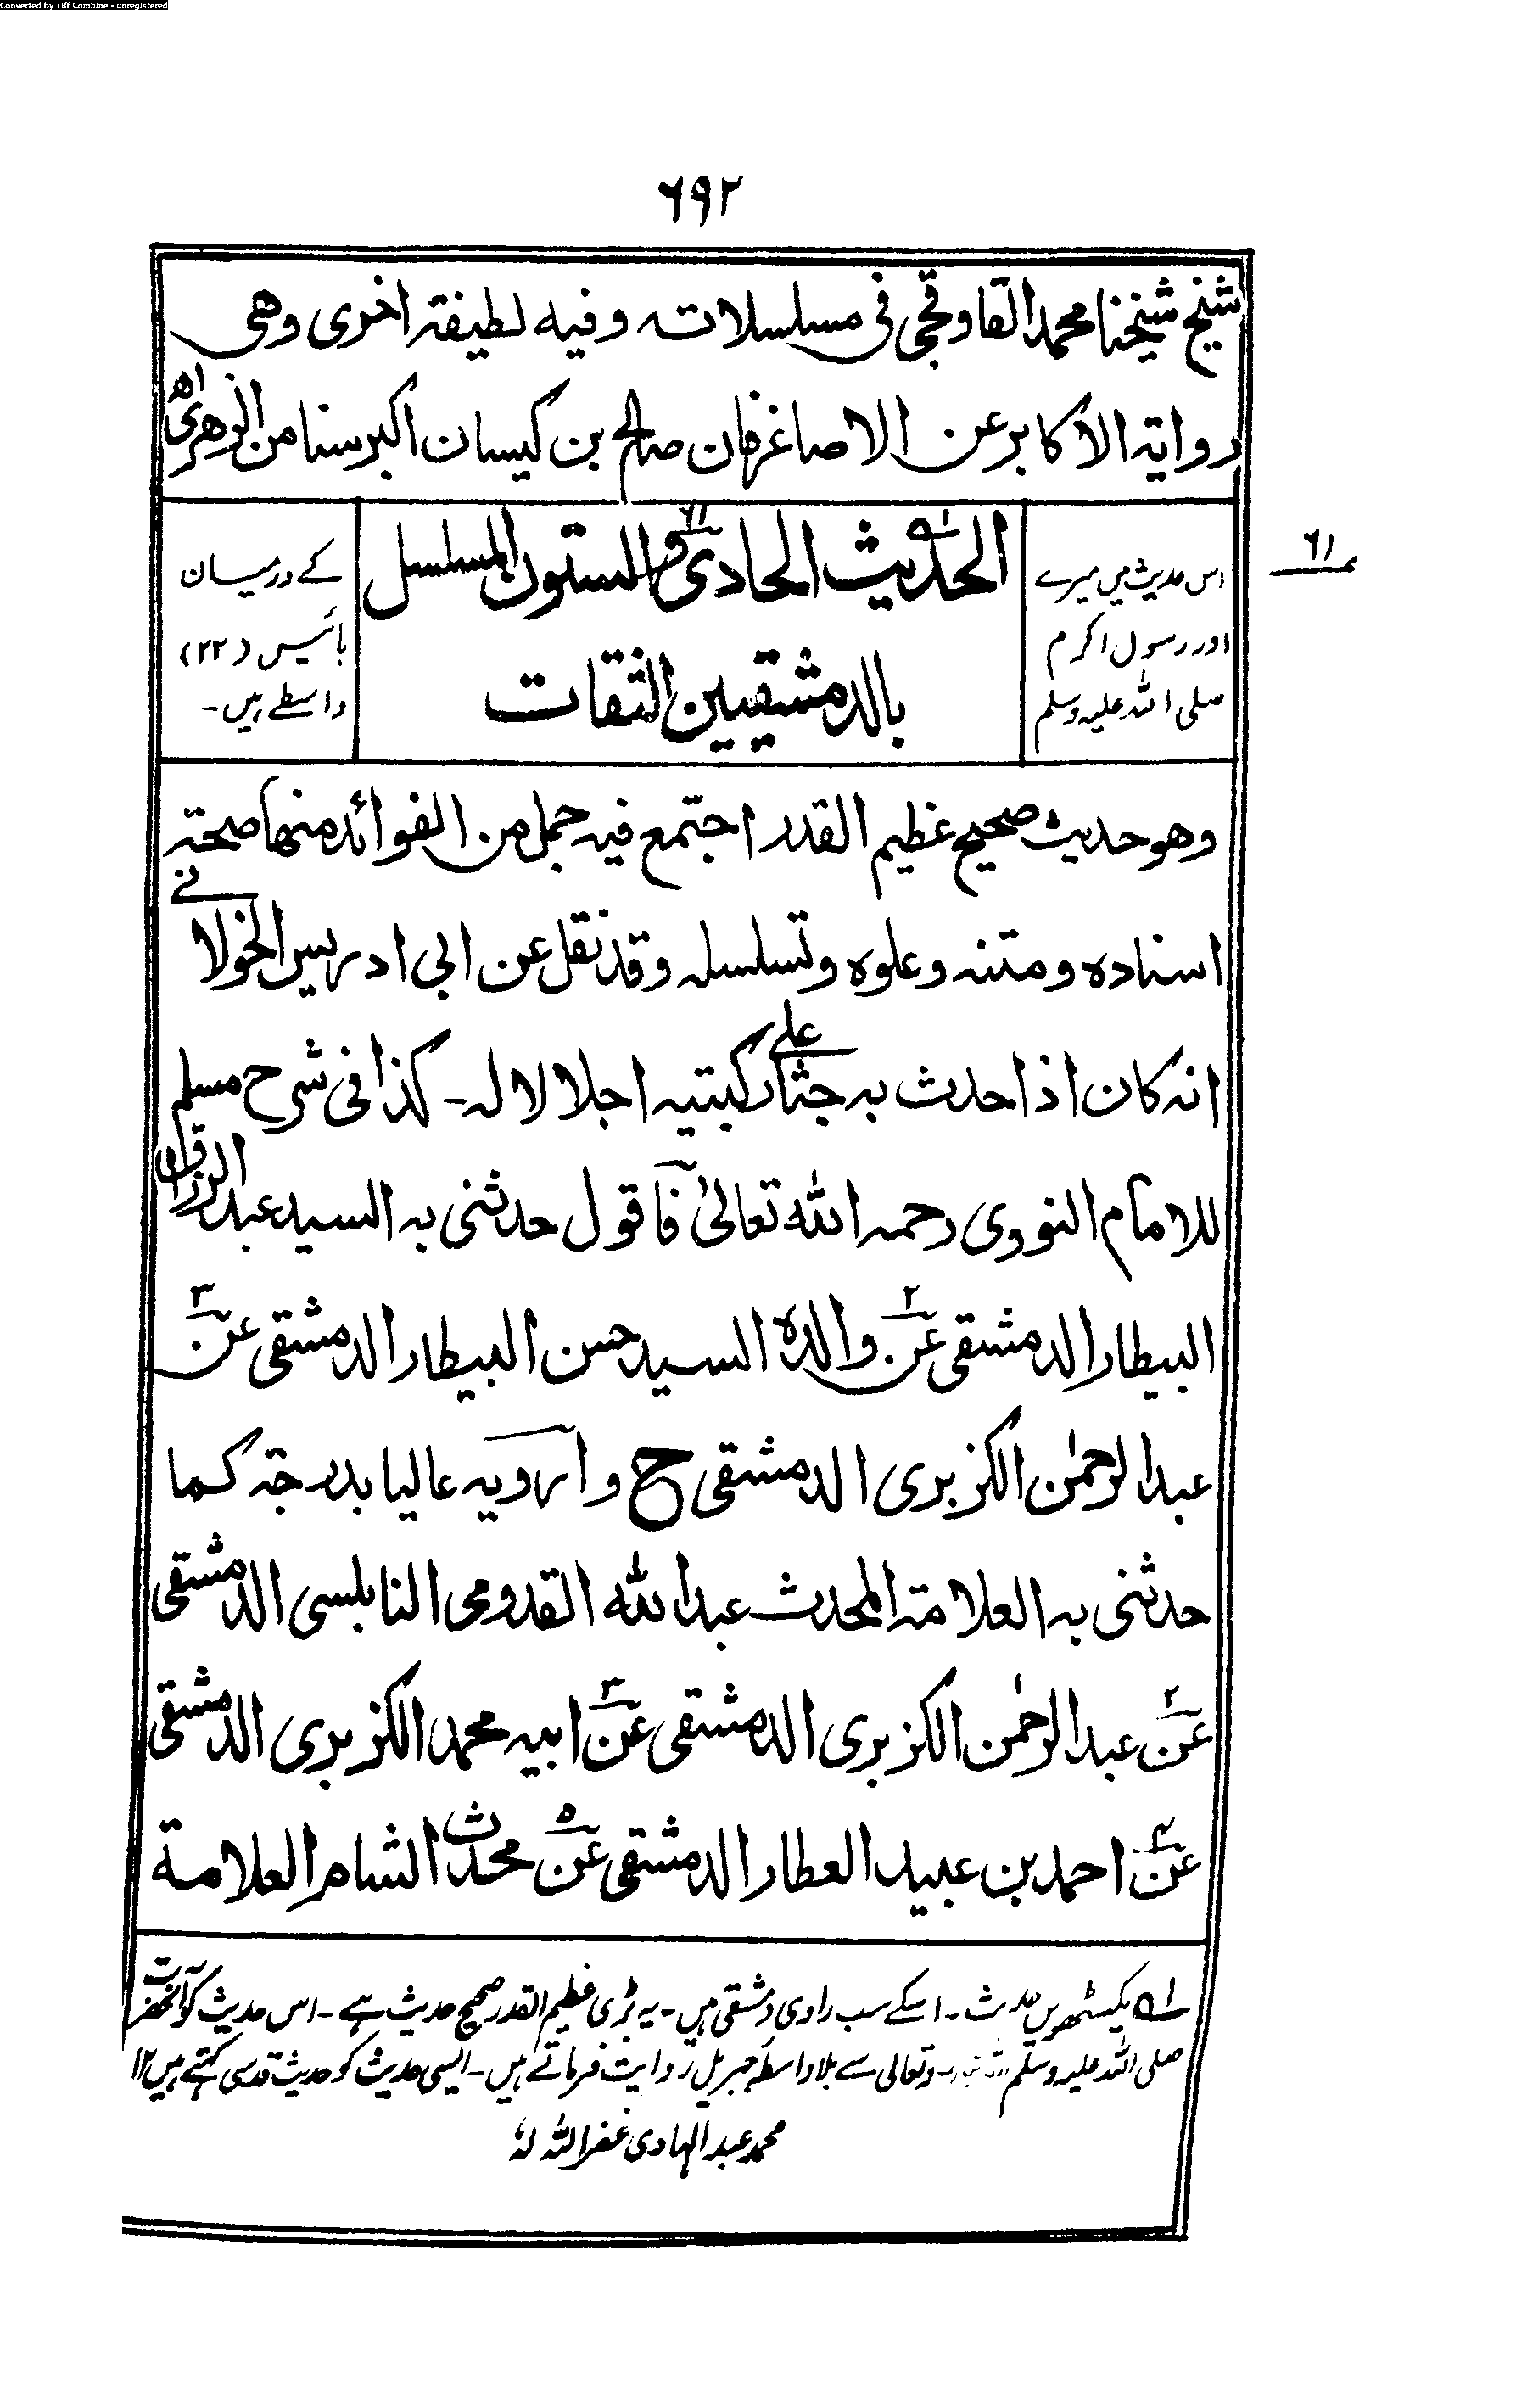 Converted by Tiff Combine - unregistered
٦٩٢
شيخ شيخنا محمد القاوقجي في مسلسلاته وفيه لطيفة اخرى وهي
رواية الاكابر عن الاصاغر فان صالح بن كيسان اكبر سنا من الزهري اھ
٦١
اس حدیث میں میرے
اور رسول اکرم
صلی اللہ علیہ وسلم
الحديث الحادی والستون المسلسل
بالدمشقيين الثقات
کے درمیان
بائیس (۲۲)
واسطے ہیں۔
وهو حديث صحيح عظيم القدر اجتمع فيه جمل من الفوائد منها صحة
اسناده ومتنه وعلوه وتسلسله وقد نقل عن ابی ادريس الخولانے
انه كان اذا حدث به جثا علی ركبتيه اجلالا له ـ كذا فی شرح مسلم
للامام النووی رحمه الله تعالیٰ فاقول حدثنی به السيد عبد الرزاق
البيطار الدمشقی عن ٢ والده السيد حسن البيطار الدمشقی عن ٣
عبد الرحمٰن الكزبری الدمشقی ح وارويه عاليا بدرجة كما
حدثنی به العلامة المحدث عبد الله القدومی النابلسی الدمشقی
عن ٢ عبد الرحمٰن الكزبری الدمشقی عن ٣ ابيه محمد الكزبری الدمشقی
عن ٤ احمد بن عبيد العطار الدمشقی عن ٥ محدث الشام العلامة
لہ اکیسٹھویں حدیث ۔ اسکے سب راوی دمشقی ہیں ۔ یہ بڑی عظیم القدر صحیح حدیث ہے ۔ اس حدیث کو آنحضرت
صلی اللہ علیہ وسلم وتعالی سے بلا واسطہ جبریل روایت فرماتے ہیں ۔ ایسی حدیث کو حدیث قدسی کہتے ہیں ۱۲
محمد عبد الہادی غفر اللہ لہ